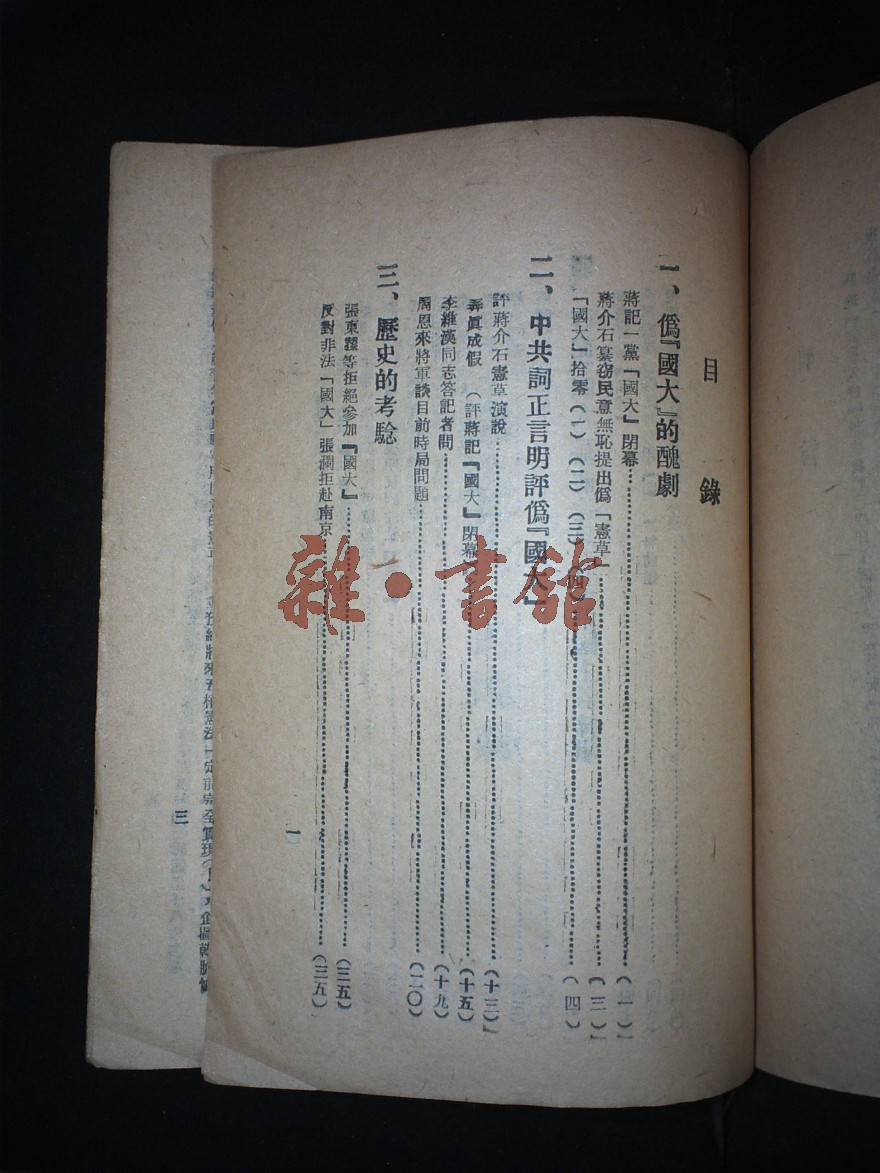 目錄
一、僞『國大』的醜劇
蔣記一黨「國大」閉幕……(一)
蔣介石纂竊民意無恥提出僞「憲草」……(三)
「國大」拾零(一)(二)(三)(四)……(四)
二、中共詞正言明評僞『國大』
評蔣介石憲草演說……(十三)
弄眞成假(評蔣記『國大』閉幕……(十五)
李維漢同志答記者問……(十九)
周恩來將軍談目前時局問題……(二〇)
三、歷史的考驗
張東蓀等拒絕參加『國大』……(三五)
反對非法「國大」張瀾拒赴南京……(三五)
一
三
雜·書館